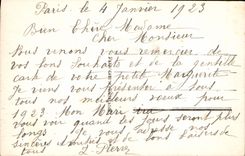 Paris le 4 Janvier 1923
Bien Chère Madame
Cher Monsieur
Nous venons vous remercier de
vos bons Souhaits et de la gentille
carte de votre petite Margueritte
Je viens vous présenter à tous
tous nos meilleurs vœux pour
1923 Mon Mari ira
vous voir quand les jours seront plus
longs Je vous adresse nos
sincères amitiés et de bons baisers de
tous